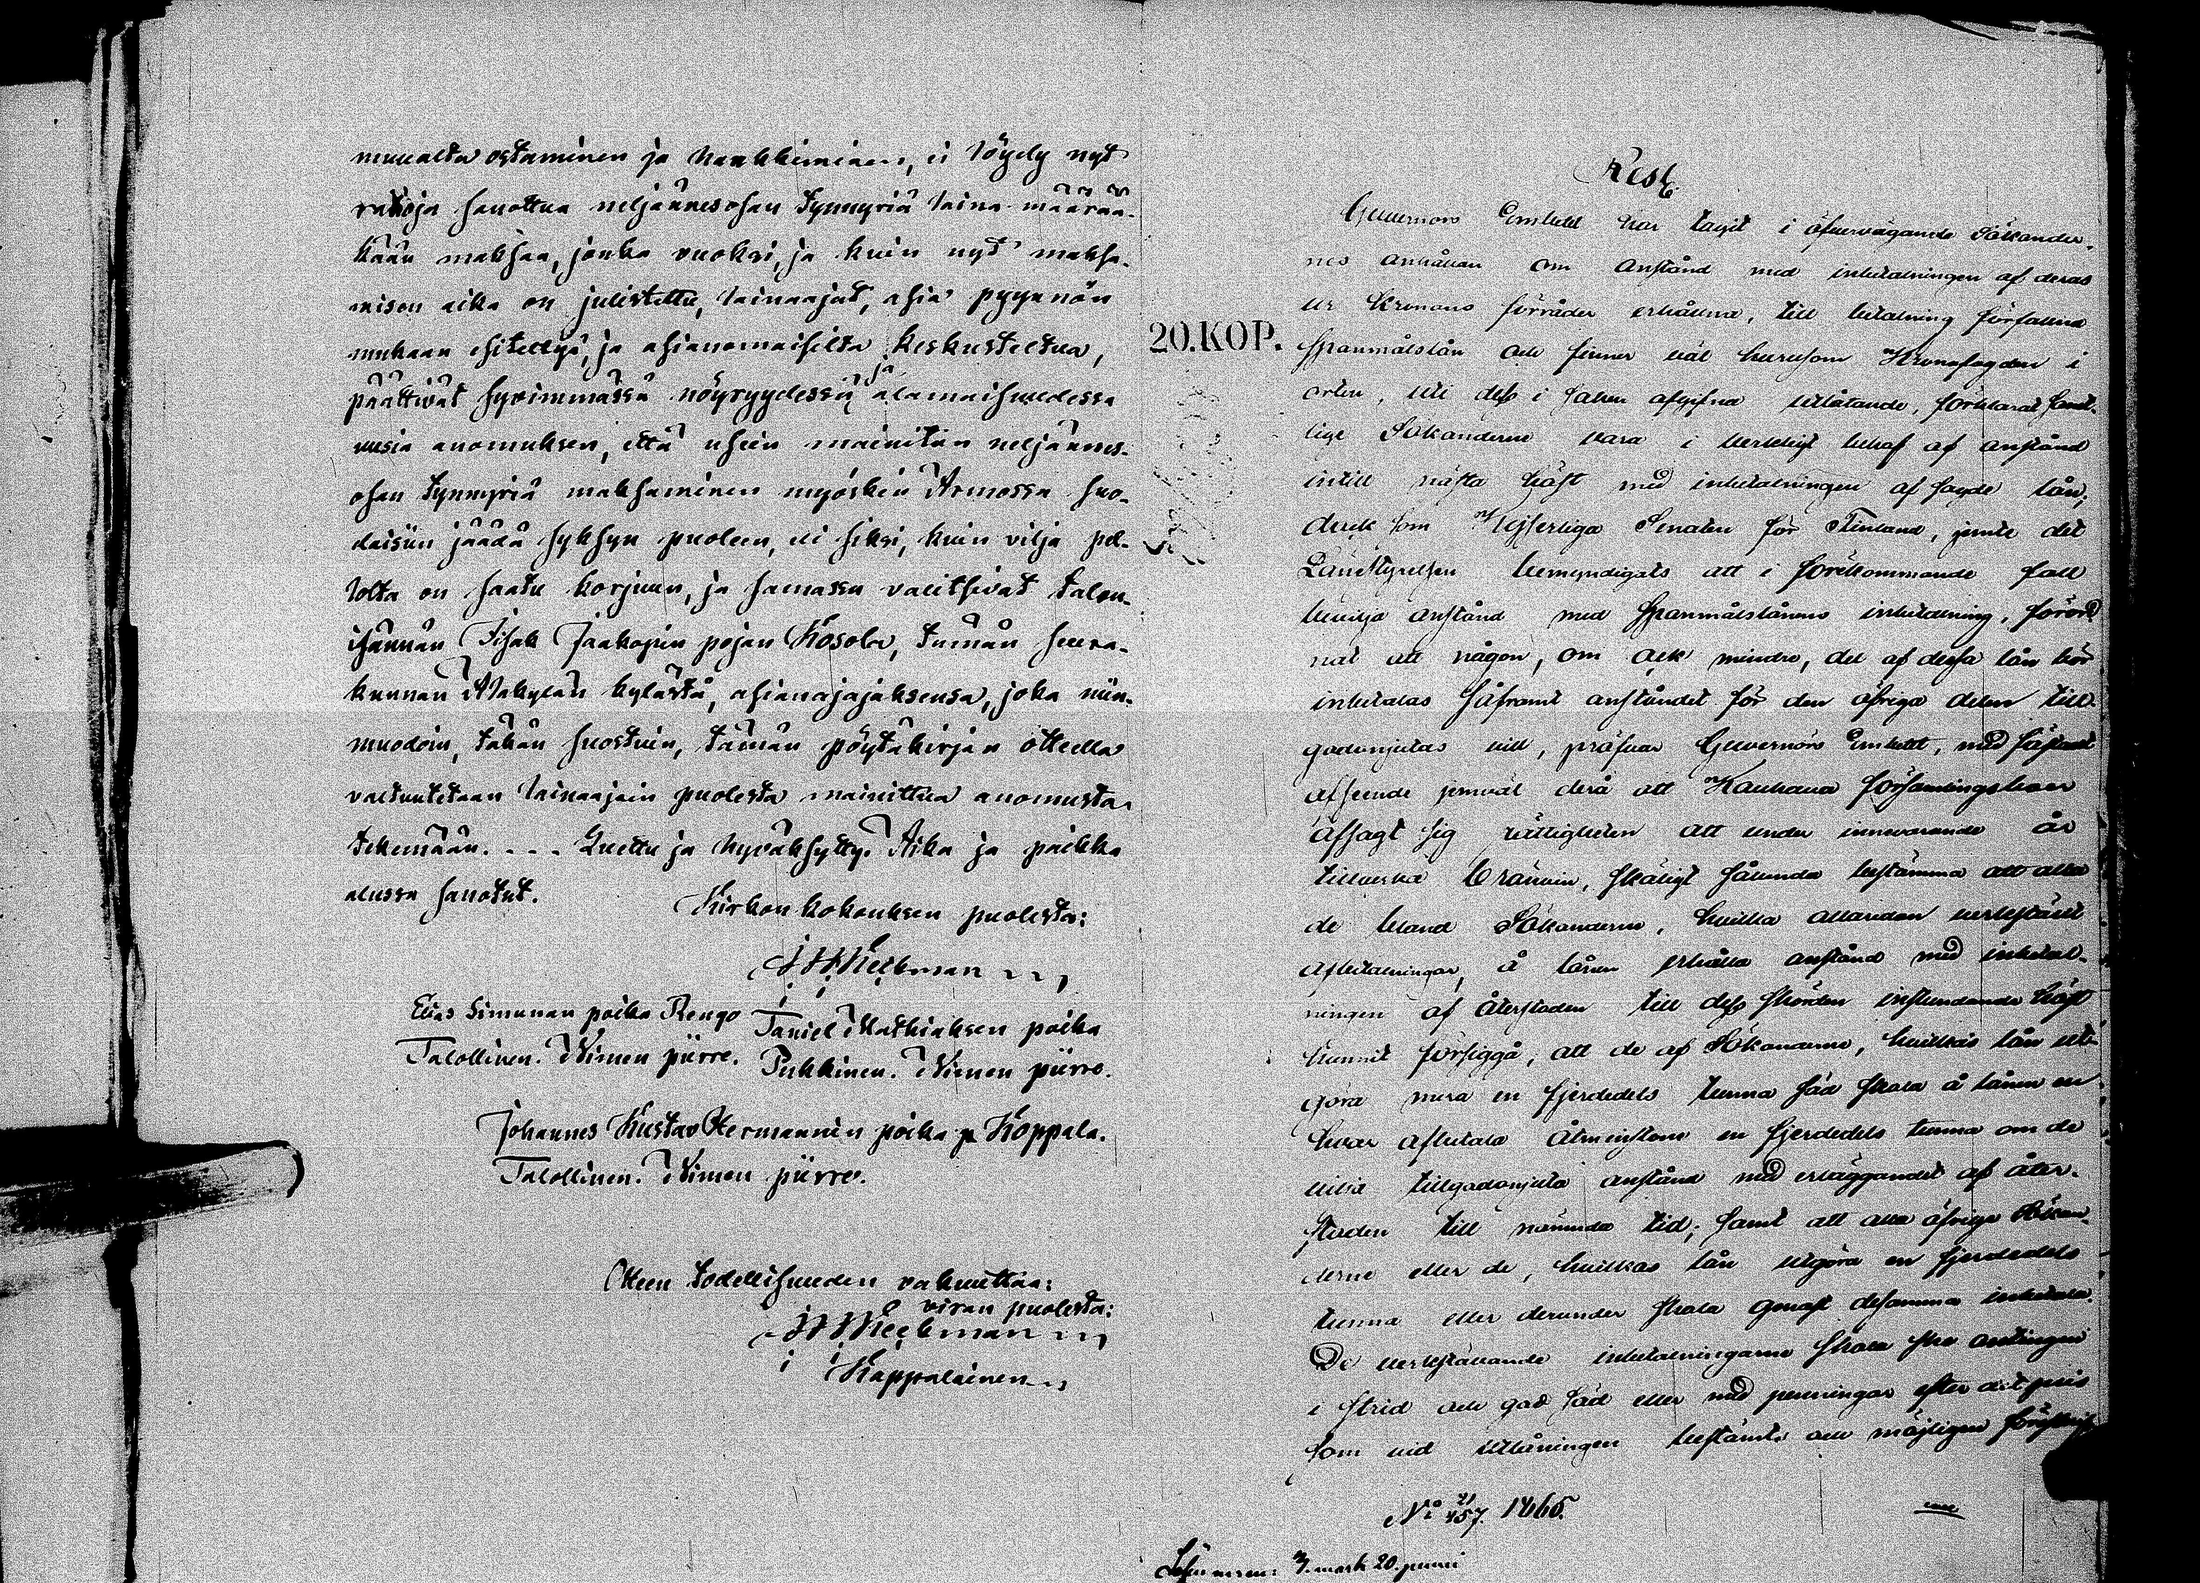 muualta ostaminen ja hankkiminen, ei löydy nyt
rahoja sanottua neljännesosan Tynnyriä laina määrää-
kään maksaa, jonka vuoksi, ja kuin nyt maksa-
misen aika on julistettu, lainaajat, asia pyynnön
mukaan esitettyä, ja asianomaisilta keskusteltua,
päättivät syvimmässä nöyryydessä ja alamaisuudessa
uusia anomuksen, että usein mainitun neljännes-
osan Tynnyriä maksaminen myöskin Armossa suo-
daisiin jäädä syksyn puoleen, eli siksi, kuin vilja pel-
lolta on saatu korjuun, ja samassa valitsivat talon-
isännän Iisak Jaakopin pojan Kosola, tämän seura-
kunnan Alakylän kylästä, asianajajaksensa, joka niin-
muodoin, tähän suostuin, tämän pöytäkirjan otteella
valtuutetaan lainaajain puolesta mainittua anomusta
tekemään. - - - Luettu ja hyväksytty. Aika ja paikka
alussa sanotut.
Kirkon kokouksen puolesta:
Elias Simunan poika Rengo
Talollinen. Nimen piirre.
Taniel Mathiaksen poika
Pukkinen. Nimen piirre.
Johannes Kustav Hermannin poika Koppala.
Talollinen. Nimen piirre.
Otteen todellisuuden vakuuttaa:
viran puolesta:
Kappalainen
20.KOP.
Resl.
Guvernörs Embetet har tagit i öfvervägande Sökander-
nes anhållan om anstånd med inbetalningen af deras
ur Kronans förråder erhållna, till betalning förfallna
Spanmålslån och finner väl hurusom Kronofogden i
orten, uti dess i saken afgifna utlåtande, förklarat samt-
lige Sökanderne vara i verkeligt behof af anstånd
intill nästa höst med inbetalningen af sagde lån;
dock som Kejserliga Senaten för Finland, jemte det
Länestyrelsen bemyndigats att i förekommande fall
bevilja anstånd med Spanmålslånens inbetalning, förord-
nat att någon, om ock mindre, del af dessa lån bör
inbetalas såframt anståndet för den öfriga delen till-
godonjutas vill, pröfvar Guvernörs Embetet, med fästadt
afseende jemväl derå att Kauhava församlingsboer
afsagt sig rättigheten att under innevarande år
tillverka bränvin, skäligt sålunda bestämma att alla
de bland Sökanderne, hvilka allaredan verkstält
afbetalningar, å lånen erhålla anstånd med inbetal-
ningen af återstoden till dess skörden instundande höst
hunnit försiggå, att de af Sökanderne, hvilkas lån ut-
göra mera en fjerdedels tunna säd skola å lånen en
hvar afbetala åtminstone en fjerdedels tunna om de
vilja tillgodonjuta anstånd med erläggandet af åter-
stoden till nämnda tid; samt att alla öfriga Sökan-
derne eller de, hvilkas lån utgöra en fjerdedels
tunna eller derunder skola genast desamma inbetala.
De verkställande inbetalningarne skola ske antingen
i strid och god säd eller med penningar efter det pris
som vid utlåningen bestämts och möjligen
No 157. 1865.
mark 20. penni